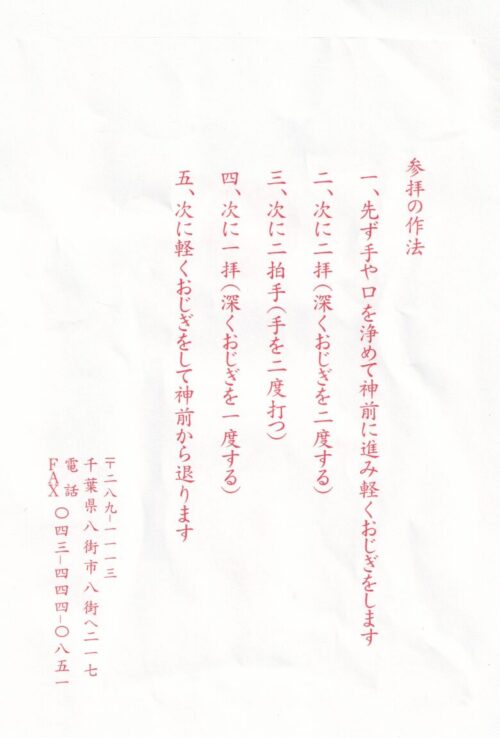 参拝の作法
一、先ず手や口を浄めて神前に進み軽くおじぎをします
二、次に二拝(深くおじぎを二度する)
三、次に二拍手(手を二度打つ)
四、次に一拝(深くおじぎを一度する)
五、次に軽くおじぎをして神前から退ります
〒二八九ー一一一三
千葉県八街市八街へ二一七
電話
FAX 〇四三ー四四四ー〇八五一